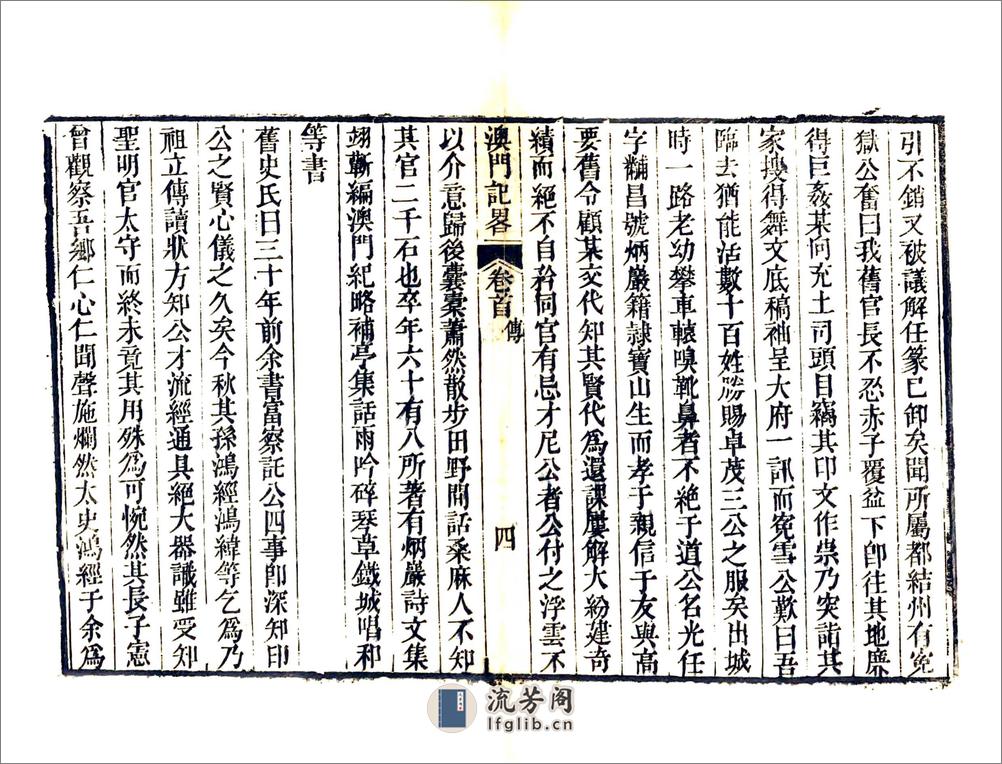 引不銷又被議解任篆已卸矣聞所屬都結州有寃
獄公奮曰我舊官長不忍赤子覆盆下卽往其地廉
得巨姦某向充土司頭目竊其印文作祟乃突詣其
家搜得舞文底稿袖呈大府一訊而寃雪公歎曰吾
臨去猶能活數十百姓勝賜卓茂三公之服矣出城
時一路老幼攀車轅嗅靴鼻者不絕于道公名光任
字黼昌號炳巖籍隸寶山生而孝于親信于友與高
要舊令顧某交代知其賢代爲還課屢解大紛建奇
績而絕不自矜同官有忌才尼公者公付之浮雲不
澳門記畧
卷首
傳
四
以介意歸後囊橐蕭然散步田野間話桑麻人不知
其官二千石也卒年六十有八所著有炳巖詩文集
翊蘄編澳門紀略補亭集話雨吟碎琴草鐵城唱和
等書
舊史氏曰三十年前余書富察託公四事卽深知印
公之賢心儀之久矣今秋其孫鴻經鴻緯等乞爲乃
祖立傳讀狀方知公才流經通具絕大器識雖受知
聖明官太守而終未竟其用殊爲可惋然其長子憲
曾觀察吾鄉仁心仁聞聲施爛然太史鴻經于余爲
流芳阁
lfglib.cn